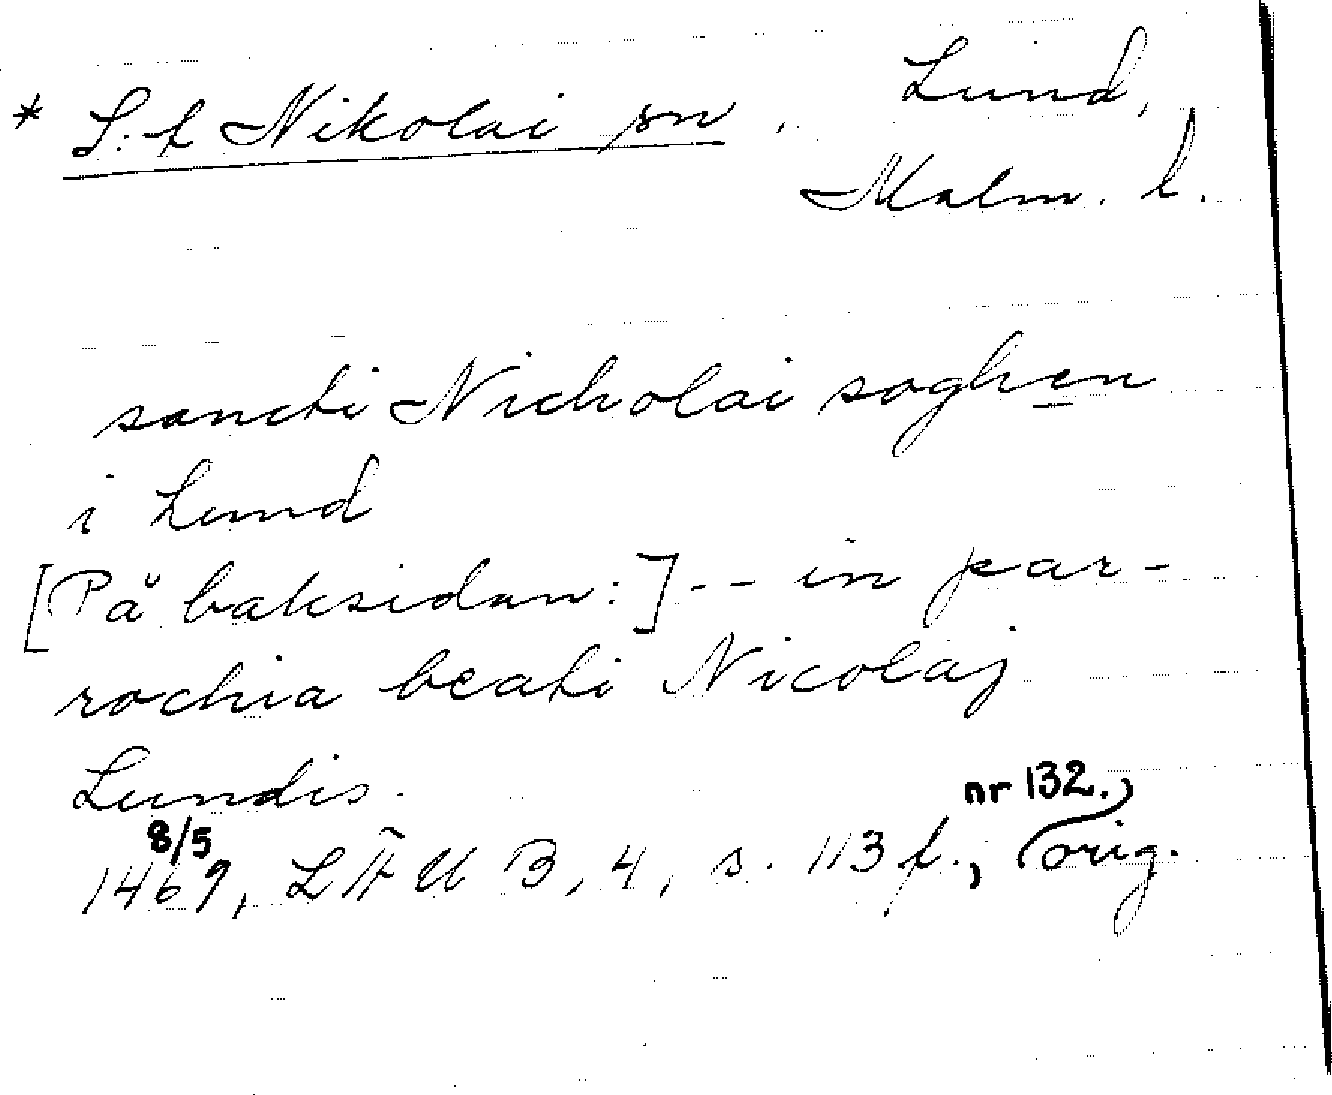 * S:t Nikolai sn, Lund,
Malm. l.
sancti Nicholai soghen
i Lund
[På baksidan:] -- in par-
rochia beati Nicolaj
Lundis.
8/5 nr 132.,
1469, LÄU B, 4, s. 113 f., orig.